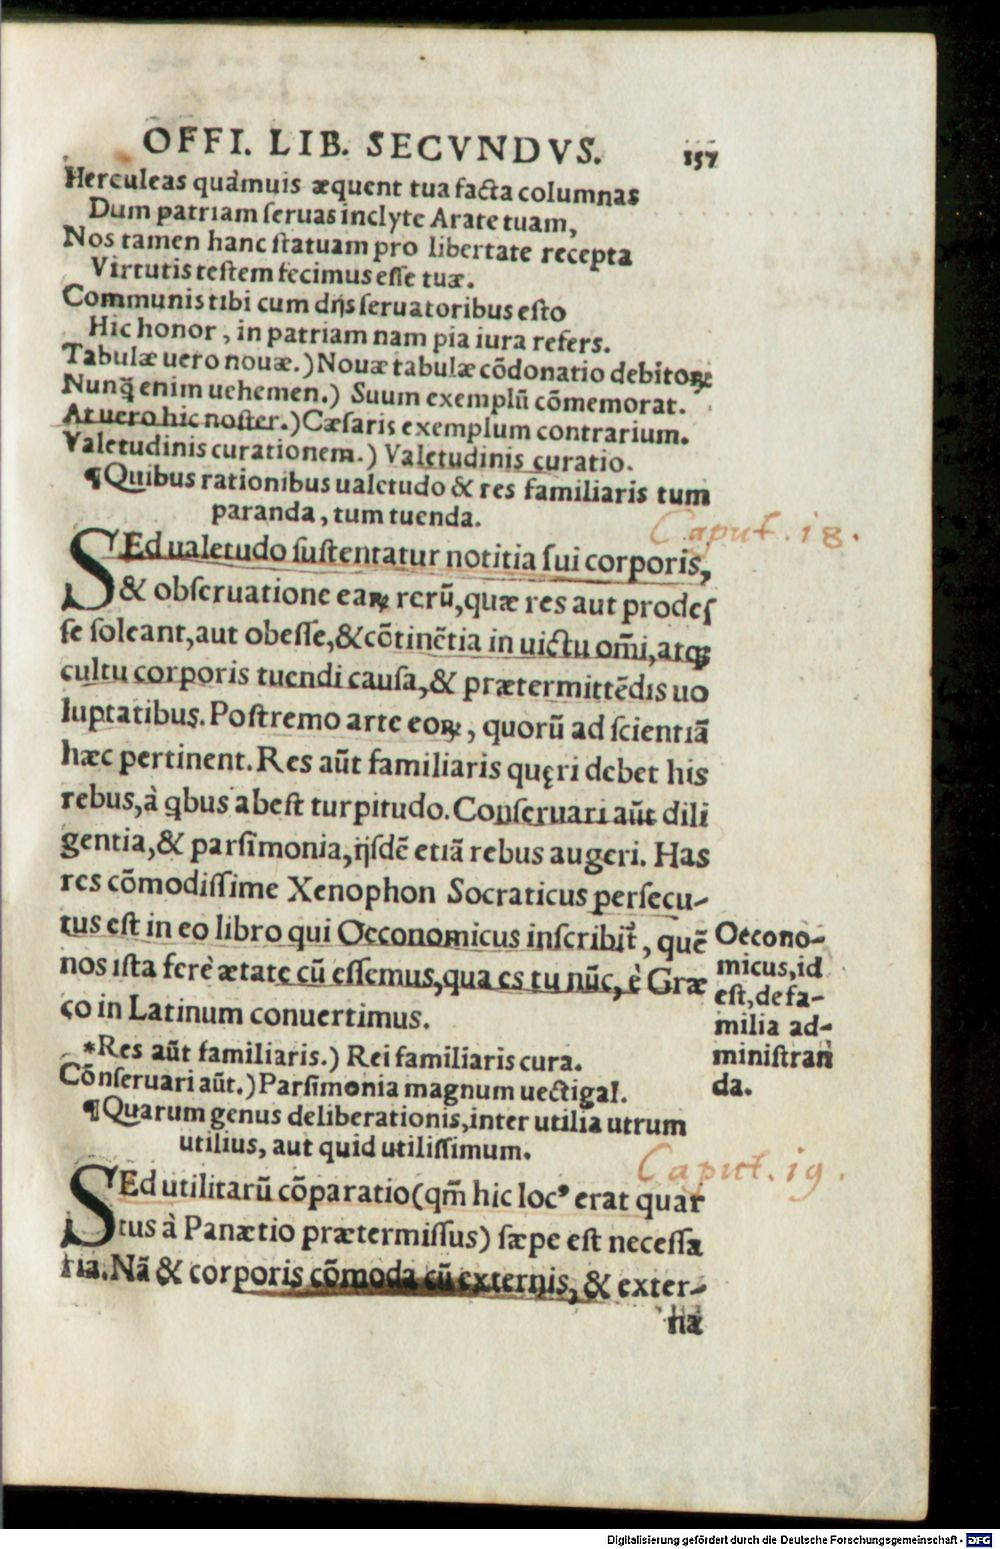 OFFI. LIB. SECVNDVS. 157
Herculeas quàmuis æquent tua facta columnas
Dum patriam ſeruas inclyte Arate tuam,
Nos tamen hanc ſtatuam pro libertate recepta
Virtutis teſtem fecimus eſſe tuæ.
Communis tibi cum dijs ſeruatoribus eſto
Hic honor, in patriam nam pia iura refers.
Tabulæ uero nouæ.) Nouæ tabulæ cōdonatio debitoꝝ
Nunꝗ̃ enim uehemen.) Suum exemplū cōmemorat.
At uero hic noſter.) Cæſaris exemplum contrarium.
Valetudinis curationem.) Valetudinis curatio.
¶Quibus rationibus ualetudo & res familiaris tum
paranda, tum tuenda.
Caput. 18.
SEd ualetudo ſuſtentatur notitia ſui corporis,
& obſeruatione eaꝝ rerū, quæ res aut prodeſ
ſe ſoleant, aut obeſſe, & cōtinētia in uictu om̄i, atꝗ
cultu corporis tuendi cauſa, & prætermittēdis uo
luptatibus. Poſtremo arte eoꝝ, quorū ad ſcientiā
hæc pertinent. Res aūt familiaris quęri debet his
rebus, à qbus abeſt turpitudo. Conſeruari aūt dili
gentia, & parſimonia, ijſdē etiā rebus augeri. Has
res cōmodiſſime Xenophon Socraticus perſecu-
tus eſt in eo libro qui Oeconomicus inſcribit̃, quē
nos iſta ferè ætate cū eſſemus, qua es tu nūc, è Græ
co in Latinum conuertimus.
Oecono-
micus, id
eſt, de fa-
milia ad-
miniſtran
da.
*Res aūt familiaris.) Rei familiaris cura.
Cōnſeruari aūt.) Parſimonia magnum uectigal.
¶Quarum genus deliberationis, inter utilia utrum
utilius, aut quid utiliſſimum.
Caput. 19.
SEd utilitarū cōparatio (qm̄ hic locꝰ erat quar
tus à Panætio prætermiſſus) ſæpe eſt neceſſa
ria. Nā & corporis cōmoda cū externis, & exter-
na
Digitalisierung gefördert durch die Deutsche Forschungsgemeinschaft - DFG